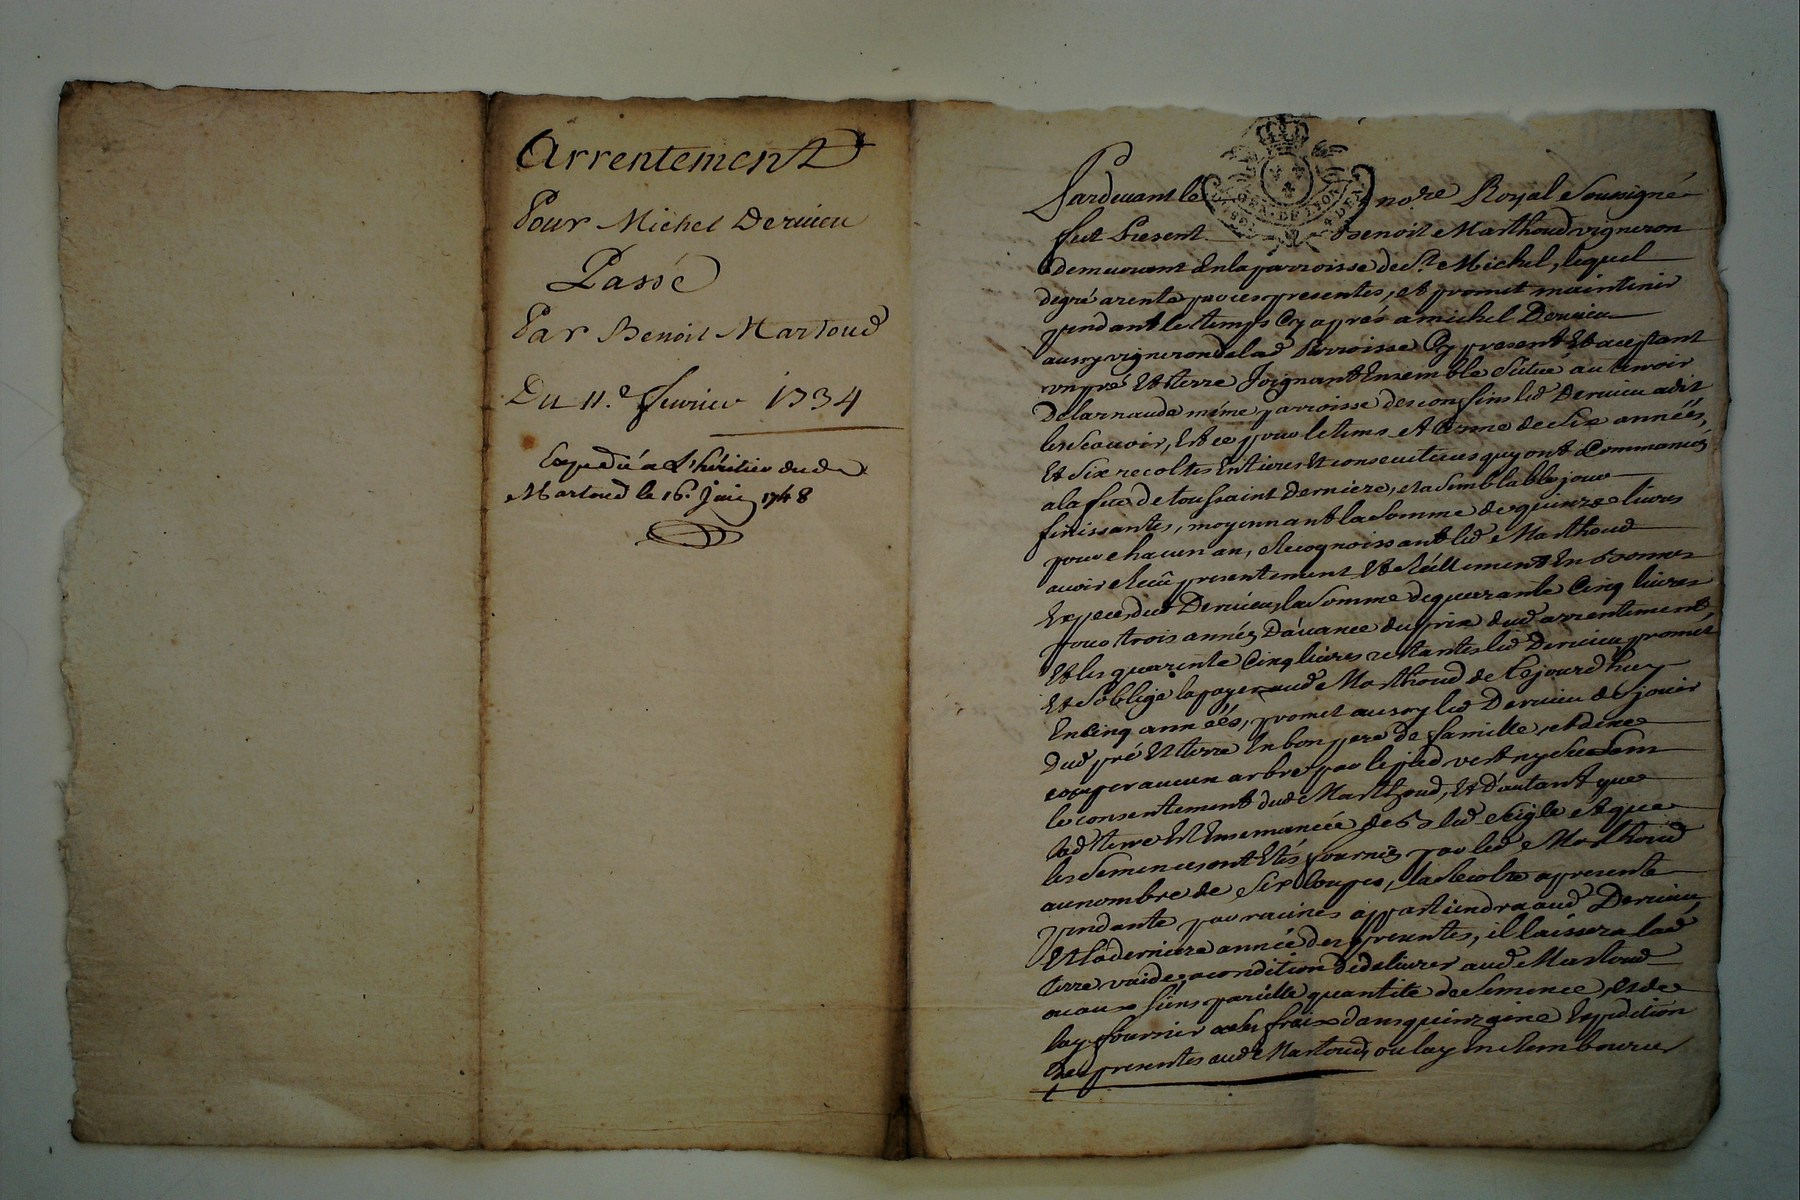 Arrentement
Pour Michel Derieu
Passé
Par Benoit Martoud
Du 11.e fevrier 1734
Expedié a L'héritier dud
Martoud le 16. Juin 1748
GEN. DE LYON
Pardevant le no.re Royal Soussigné
fut Present Benoit Marthoud vigneron
demeurant En la parroisse de S.t Michel, lequel
degré arente par ces presentes, et promet maintenir
pendant le temps Cy après a michel Derieu
aussy vigneron de lad Parroisse Cy present Et aceptant
un pré Et terre Joignant Ensemble Situé au terroir
Delarnauda même parroisse des confins led Derieu a dit
les Scavoir, Et ce pour le tems et terme de Six années,
Et Six recoltes Entieres Et consecutives quy ont Commancés
a la fete de toussaint Derniere, et a Semblable jour
finissantes, moyennant la Somme de quinze livres
pour chacun an, Recognoissant led Marthoud
avoir Receu presentement Et Réellement En bonnes
Especes dud Derieu, la Somme de quarante Cinq livres
pour trois années D'avance du prix dud arrentement,
Et les quarante Cinq livres restantes led Derieu promet
Et S'oblige la payer aud Marthoud de Ce jourd'huy
En Cinq années, promet aussy led Derieu de Jouir
Dud pré Et terre En bon pere de famille, et de ne
couper aucun arbre par le pied vert ny Sec Sans
le consentement dud Marthoud, Et d'autant que
lad terre Est Ensemancée de bled Seigle Et que
les Semences ont Etés fournies par led Marthoud
au nombre de Six Coupes, la Recolte a presente
pendante par racines appartiendra aud Derieu,
Et la derniere année des presentes, il laissera lad
terre vuide, a condition de delivrer aud Martoud
ou aux Siens pareille quantité de Semence, et de
luy fournir a Ses fraix dans quinzaine Expedition
Des presentes aud Martoud, ou l'en Rembourcer